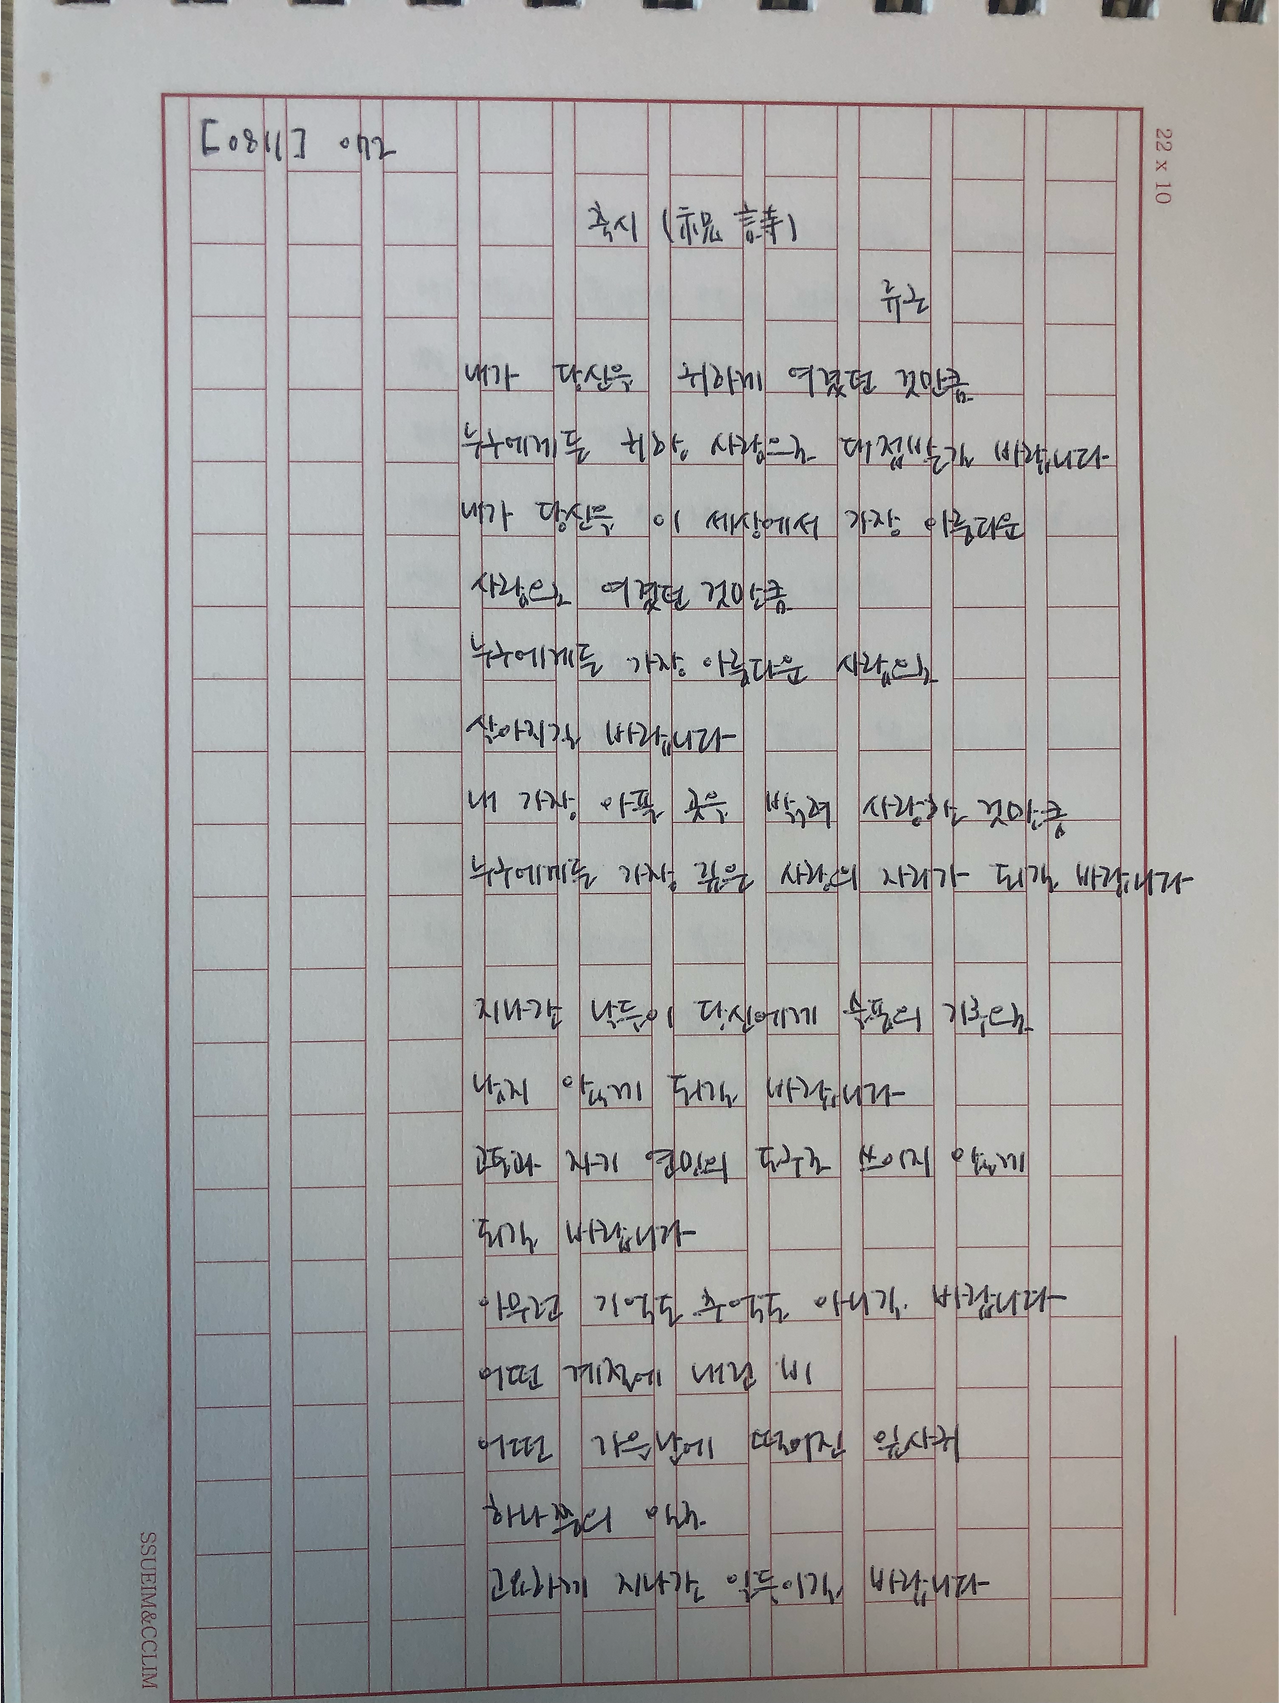 [0811] 072
축시 (祝詩)
류근
내가 당신을 귀하게 여겼던 것만큼
누구에게든 귀한 사람으로 대접받길 바랍니다
내가 당신을 이 세상에서 가장 아름다운
사람으로 여겼던 것만큼
누구에게든 가장 아름다운 사람으로
살아지길 바랍니다
내 가장 아픈 곳을 밝혀 사랑한 것만큼
누구에게든 가장 깊은 사랑의 자리가 되길 바랍니다
지나간 날들이 당신에게 슬픔의 기록으로
남지 않게 되길 바랍니다
고통과 자기 연민의 도구로 쓰이지 않게
되길 바랍니다
아무런 기억도 추억도 아니길 바랍니다
어떤 계절에 내린 비
어떤 가을날에 떨어진 잎사귀
하나쯤의 일로
고요하게 지나간 일들이길 바랍니다
22 x 10
SSUEIM&CCLIM